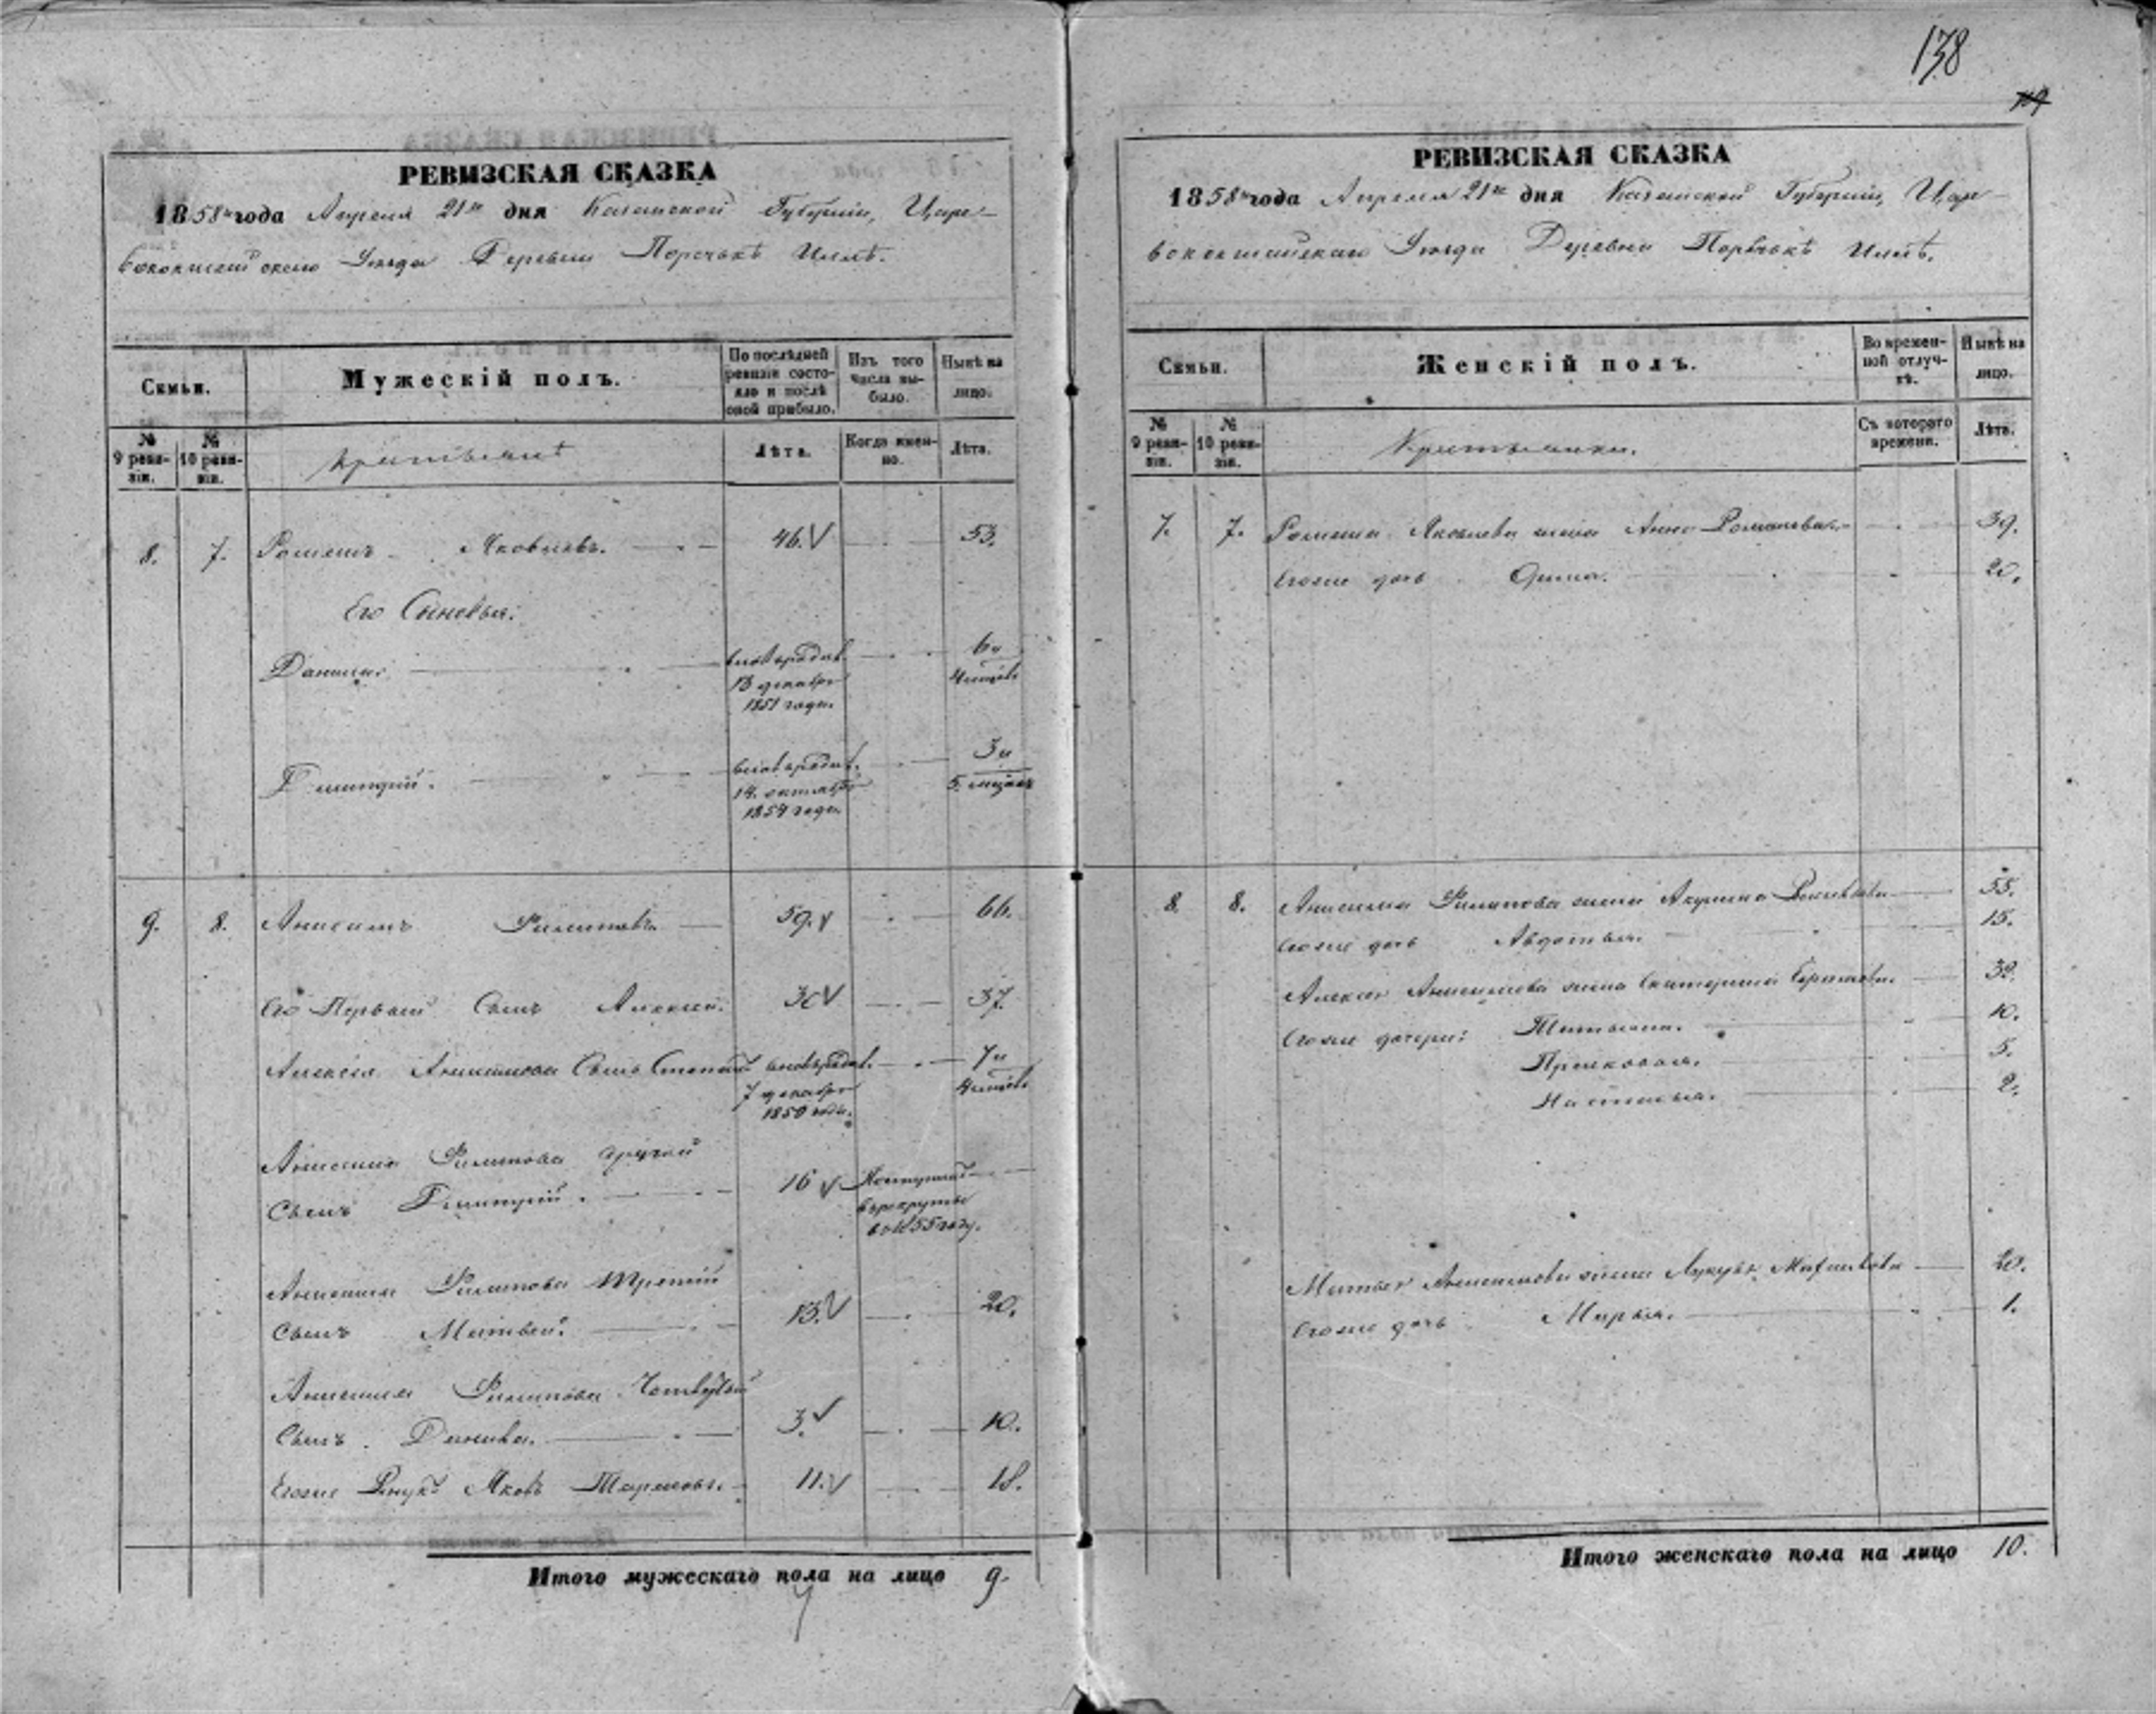 138
РЕВИЗСКАЯ СКАЗКА
1858 года Апреля 21го дня Казанской Губернiи, Царе-
вококшайскаго Уезда Деревни
Семьи.
Мужескiй полъ.
По послѣдней ревизiи состояло и послѣ оной прибыло.
Изъ того числа выбыло.
Нынѣ на лицо.
№ 9 ревизiи.
№ 10 ревизiи.
Лѣта.
Когда именно.
Лѣта.
8. 7. Романъ Яковлевъ. 46. 53.
Его Сыновья:
Данила. 6 и
13 декабря 4 месяц.
1851 года.
Дмитрiй. 3 и
14 октября 5 месяц.
1854 года.
9. 8. Анисимъ Филиповъ 59. 66.
Его Первый Сынъ Алексей. 30 37.
Алексея Анисимова Сынъ Степанъ 7 и
7 декабря 4 месяц.
1850 года.
Анисима Филипова другой
Сынъ Дмитрiй. 16 Поступилъ
в рекруты
в 1855 году.
Анисима Филипова третiй
Сынъ Матвей. 13. 20.
Анисима Филипова Четвертый
Сынъ. 3. 10.
Егоже Внукъ Яковъ 11. 18.
Итого мужескаго пола на лицо 9.
РЕВИЗСКАЯ СКАЗКА
1858 года Апреля 21го дня Казанской Губернiи, Царе-
вококшайскаго Уезда Деревни
Семьи.
Женскiй полъ.
Во временной отлучкѣ.
Нынѣ на лицо.
№ 9 ревизiи.
№ 10 ревизiи.
Крестьянки.
Съ котораго времени.
Лѣта.
7. 7. Романа Яковлева жена Анна Романова 39.
Егоже дочь 20.
8. 8. Анисима Филипова жена Акулина 55.
Егоже дочь Авдотья. 15.
Алексея Анисимова жена Екатерина 38.
Егоже дочери: Татьяна. 10.
Прасковья. 5.
Настасья. 2.
Матвея Анисимова жена 20.
Егоже дочь Марья. 1.
Итого женскаго пола на лицо 10.